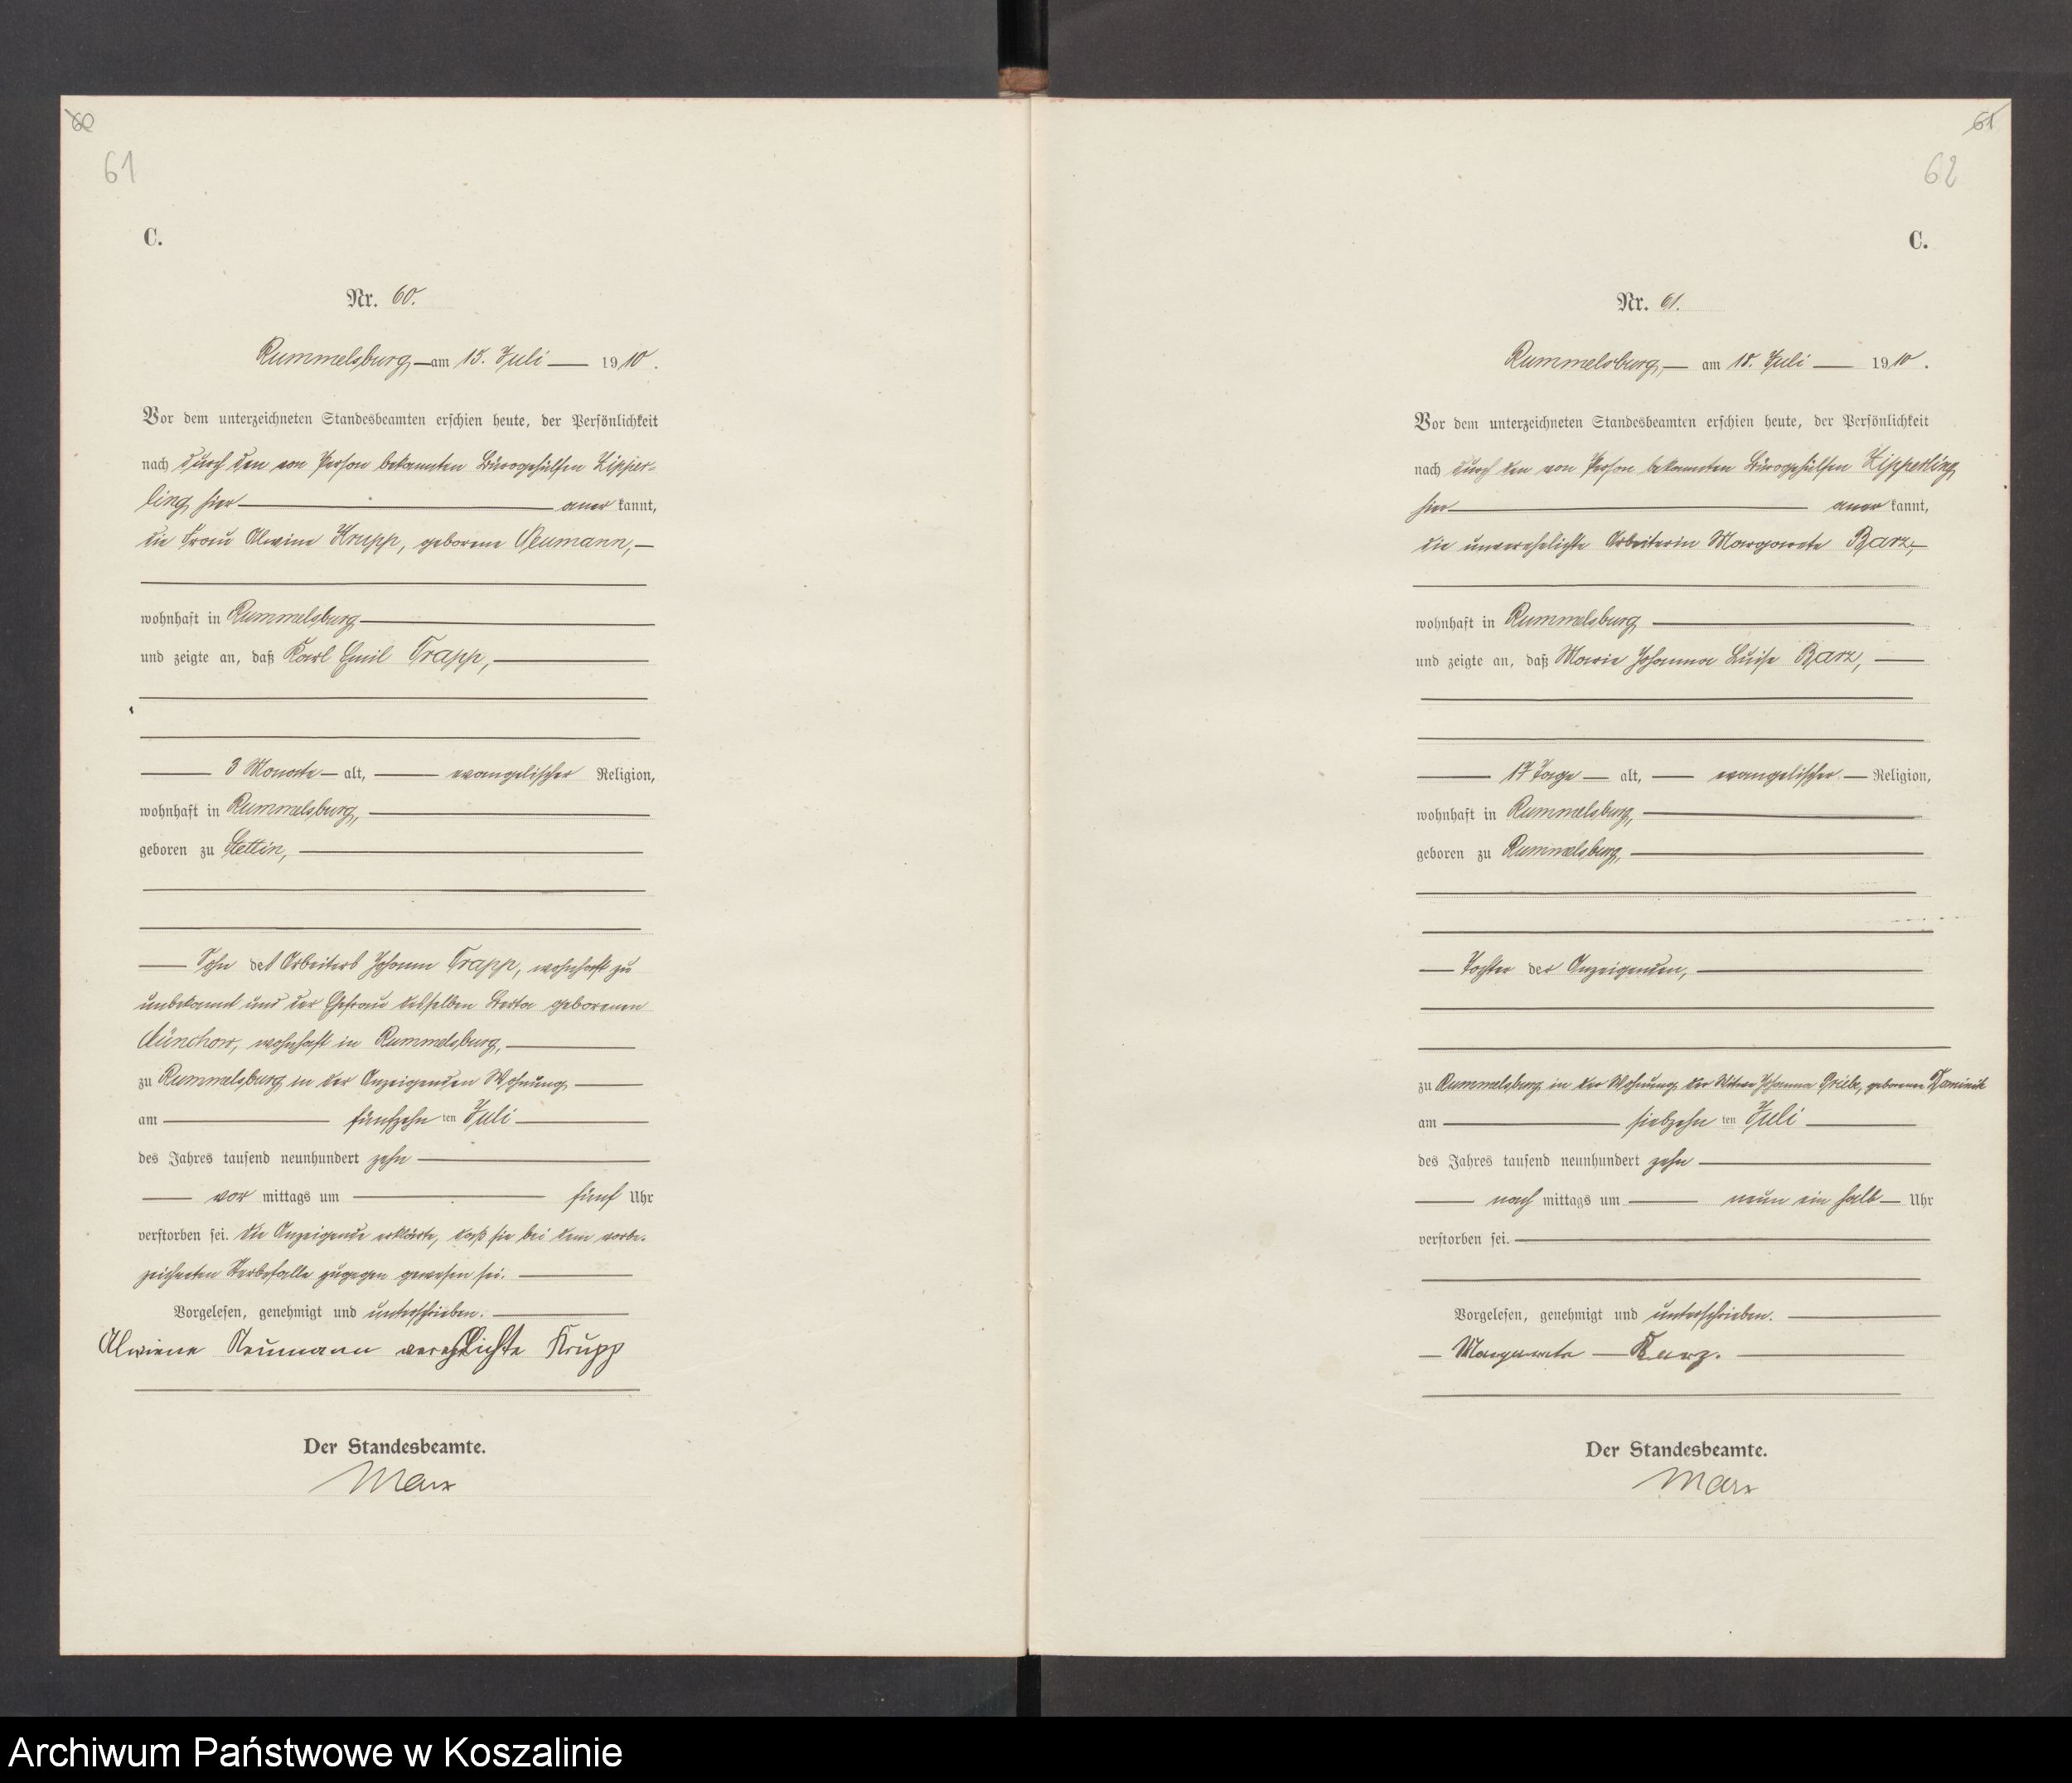 60
61
C.
Nr. 60.
Rummelsburg, am 15. Juli 1910.
Vor dem unterzeichneten Standesbeamten erschien heute, der Persönlichkeit
nach durch den von Person bekannten Bürogehülfen Zipper-
ling hier anerkannt,
die Frau Alwine Krupp, geborene Neumann,
wohnhaft in Rummelsburg
und zeigte an, daß Karl Emil Trapp,
3 Monate alt, evangelischer Religion,
wohnhaft in Rummelsburg,
geboren zu Stettin,
Sohn des Arbeiters Johann Trapp, wohnhaft zu
unbekannt und der Ehefrau desselben Berta geborenen
Münchow, wohnhaft in Rummelsburg,
zu Rummelsburg in der Anzeigenden Wohnung
am fünfzehnten Juli
des Jahres tausend neunhundert zehn
vormittags um fünf Uhr
verstorben sei. Die Anzeigende erklärte, daß sie bei dem vorbe-
zeichneten Sterbefalle zugegen gewesen sei.
Vorgelesen, genehmigt und unterschrieben.
Alwiene Neumann verehlichte Krupp
Der Standesbeamte.
Marx
61
62
C.
Nr. 61.
Rummelsburg, am 18. Juli 1910.
Vor dem unterzeichneten Standesbeamten erschien heute, der Persönlichkeit
nach durch den von Person bekannten Bürogehülfen Zipperling
hier anerkannt,
die unverehelichte Arbeiterin Margarete Barz,
wohnhaft in Rummelsburg
und zeigte an, daß Marie Johanna Luise Barz,
17 Tage alt, evangelischer Religion,
wohnhaft in Rummelsburg,
geboren zu Rummelsburg,
Tochter der Anzeigenden,
zu Rummelsburg in der Wohnung der Witwe Johanna Priebe, geborene Dominik
am siebzehnten Juli
des Jahres tausend neunhundert zehn
nachmittags um neun ein halb Uhr
verstorben sei.
Vorgelesen, genehmigt und unterschrieben.
Margarete Barz.
Der Standesbeamte.
Marx
Archiwum Państwowe w Koszalinie